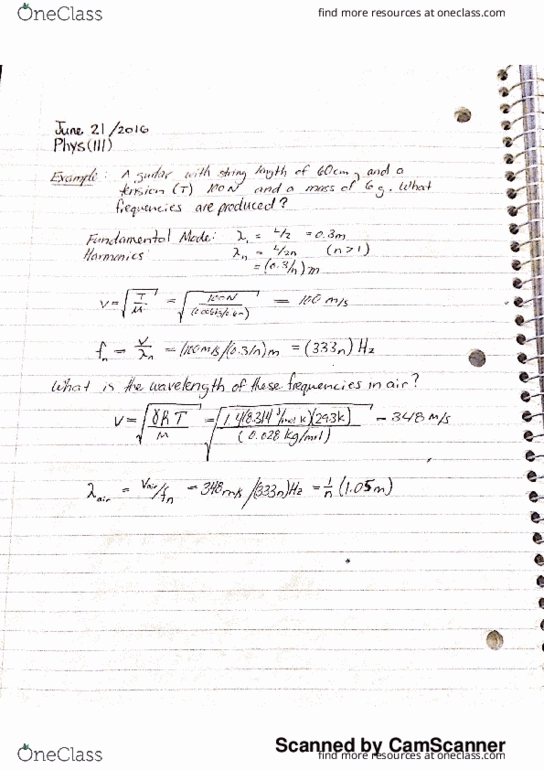 OneClass
find more resources at oneclass.com
June 21/2016
Phys(111)
Example: A guitar with string length of 60cm, and a
tension (T) 100N and a mass of 6g. What
frequencies are produced?
Fundamental Mode: λ₁ = L/2 = 0.3m
Harmonics λₙ = L/2n (n>1)
= (0.3/n)m
v = √(T/μ) = √(100N/(0.006kg/0.6m)) = 100 m/s
fₙ = v/λₙ = (100m/s/(0.3/n)m = (333n) Hz
What is the wavelength of these frequencies in air?
v = √(γRT/M) = √(1.4(8.314 J/mol k)(293k)/(0.028 kg/mol)) - 348 m/s
λair = Vair/fₙ = 348m/s/(333n)Hz = 1/n (1.05m)
Scanned by CamScanner
OneClass
find more resources at oneclass.com